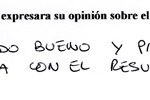 expresara su opinión sobre el
DO BUENO Y P
A CON EL RESU